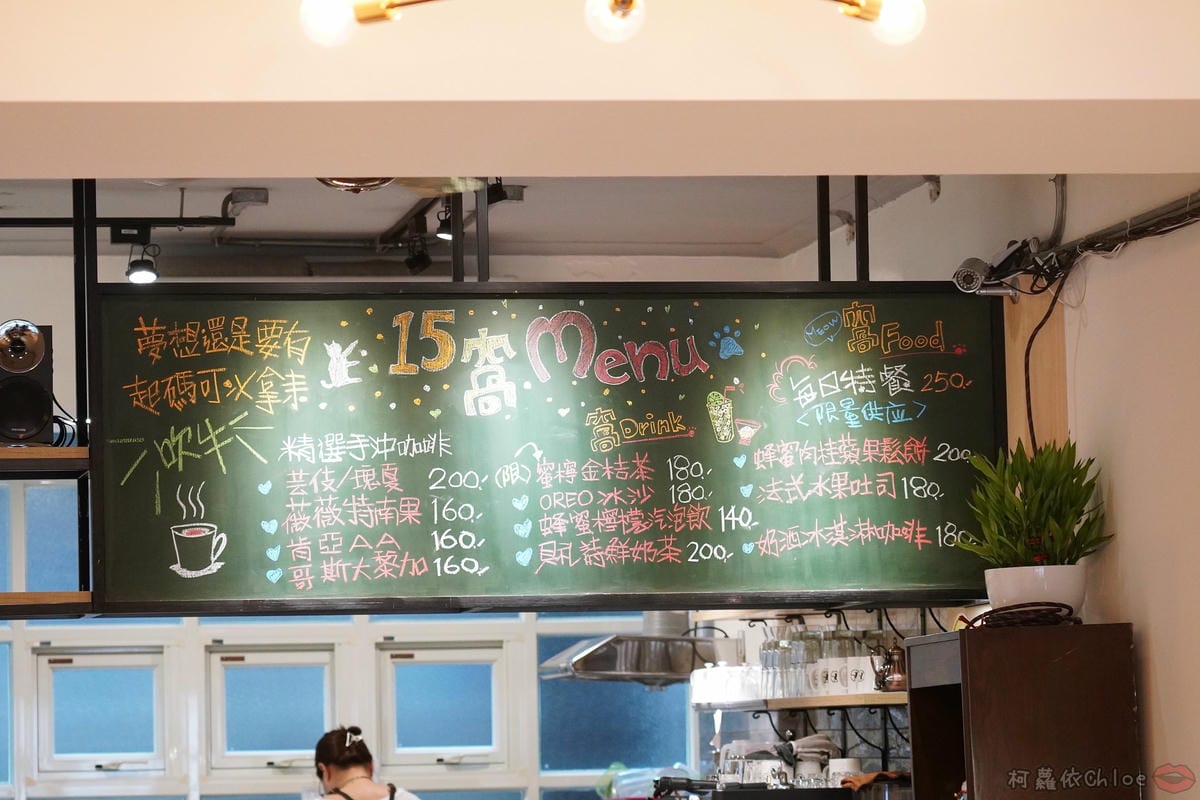 夢想還是要有
起碼可以拿來
吹牛
15窩 Menu
精選手沖咖啡
芸伎/瑰夏 200.
薇薇特南果 160.
肯亞AA 160.
哥斯大黎加 160.
窩Drink
(限)蜜檸金桔茶 180.
OREO冰沙 180.
蜂蜜檸檬汽泡飲 140.
貝礼詩鮮奶茶 200.
MEOW
窩Food
每日特餐 250.
<限量供应>
蜂蜜肉桂蘋果鬆餅 200.
法式水果吐司 180.
奶酒冰淇淋咖啡 180.
柯蘿依Chloe